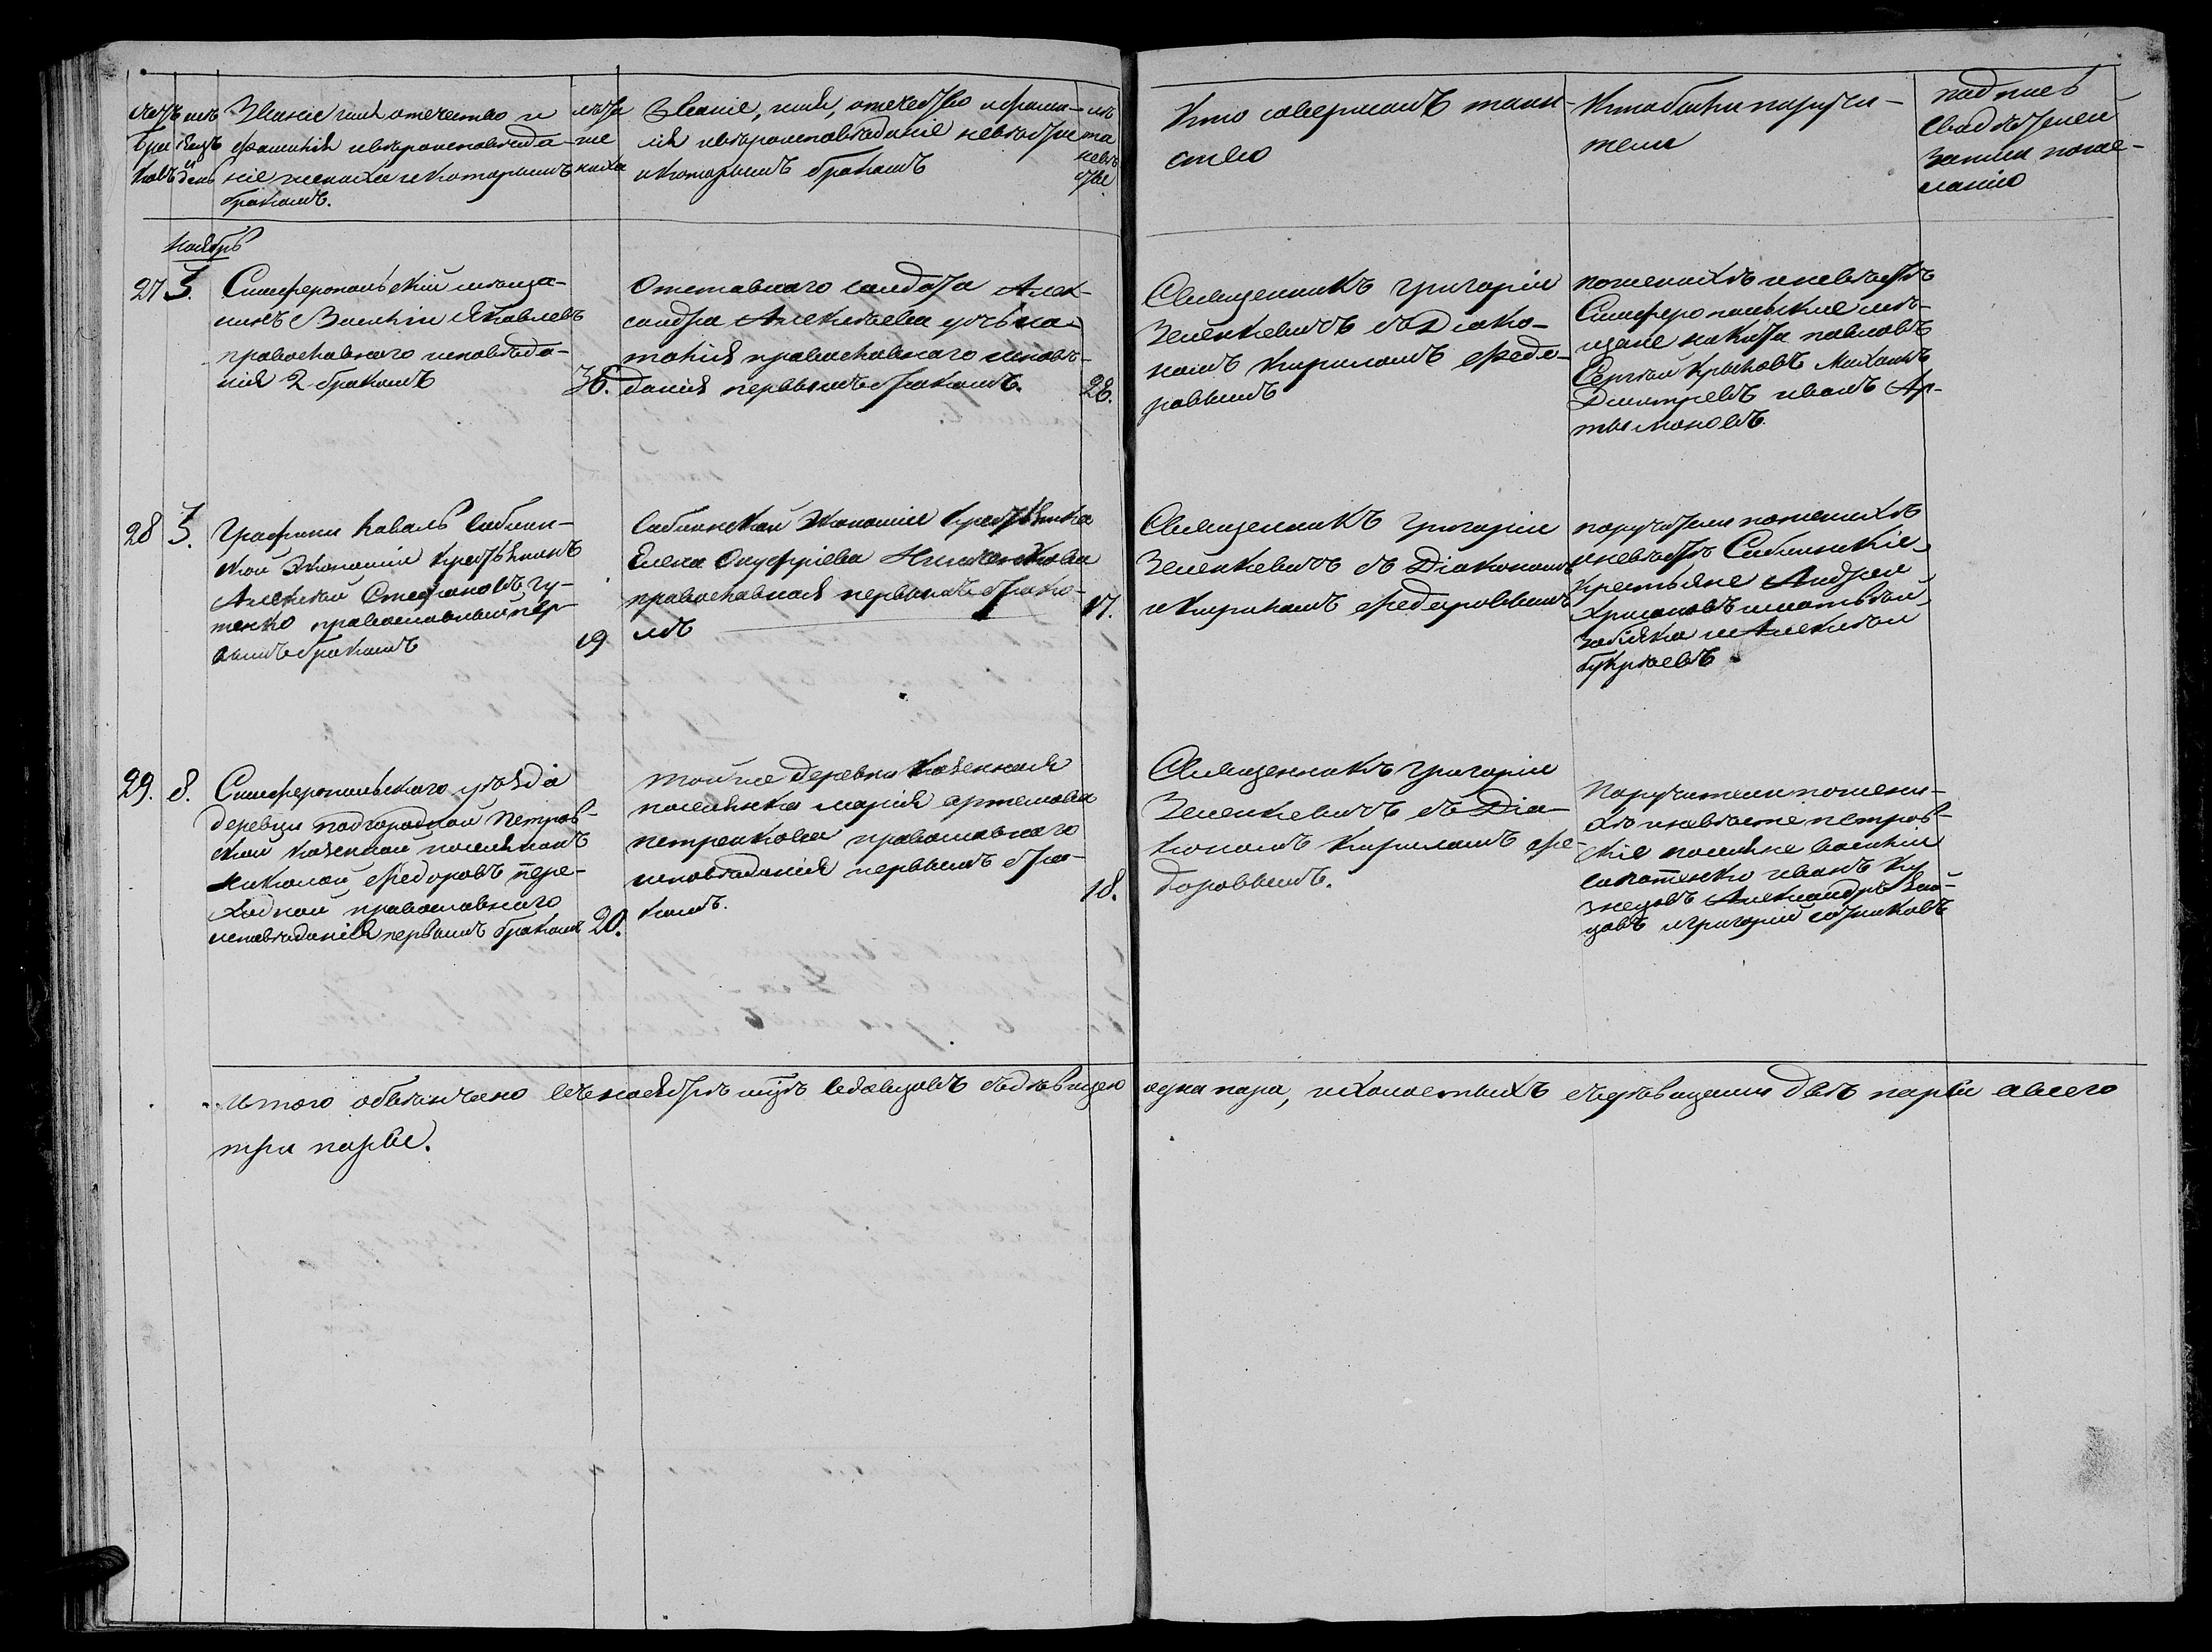 Счетъ
бра
ковъ
мѣ
сяцъ
и
день
Званіе имя отечество и
фамилія и вѣроисповѣда-
ніе жениха и которымъ
бракомъ.
лѣта
же
ниха
Званіе, имя, отечество и фами-
лія и вѣроисповѣданіе невѣсты
и которымъ бракомъ
лѣ
та
невѣ
сты.
Кто совершалъ таин-
ство
Кто были поручи-
тели
подпись
свидѣтелей
записи по же-
ланію
ноябрь
27 3. Симферопольскій мѣща-
нинъ Василій Яковлевъ
православнаго исповѣда-
нія 2 бракомъ
36.
Отставнаго солдата Алек-
сандра Алексѣева
православнаго исповѣ-
данія первымъ бракомъ.
28.
Священникъ Григорій
Зеленкевичъ съ Діако-
номъ Кириломъ Федо-
ровымъ
по женихѣ и невѣстѣ
Симферопольскіе мѣ-
щане никита павловъ
Сергѣй Крыловъ Михаилъ
Дмитревъ иванъ Ар-
тымоновъ.
28 3. Графини Каваль Саблын-
ской Экономіи крестьянинъ
Алексѣй Стефановъ Гу-
тенко православный пер-
вымъ бракомъ
19
Саблынской Экономіи крестьянка
Елена Онуфріева
православная первымъ брако-
мъ
17.
Священникъ Григорій
Зеленкевичъ съ Діакономъ
и Кириломъ Федоровымъ
поручители по женихѣ
и невѣстѣ Саблынскіе
крестьяне Андрей
матвѣй
забіяка и Алексѣй
букрѣевъ
29. 8. Симферопольскаго уѣзда
деревни подгородной Петров-
ской казенной поселянинъ
николай Федоровъ пере-
ходной православнаго
исповѣданія первымъ бракомъ
20.
той же деревни казенная
поселянка марія артемова
петренкова православнаго
исповѣданія первымъ бра-
комъ.
18.
Священникъ Григорій
Зеленкевичъ съ Діа-
кономъ Кириломъ Фе-
доровымъ.
Поручители по жени-
хѣ и невѣсте петров-
скіе поселяне василій
иванъ Ку
знецовъ Александръ Зай-
цовъ и григорій
итого обвѣнчано въ ноябрѣ мцѣ вдовцовъ съ дѣвицею одна пара, и холостыхъ съ дѣвицами двѣ пары а всего
три пары.